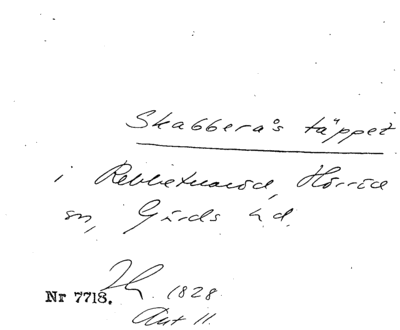 Skabberås täppet
i Rebbetuaröd, Hörröd
sn, Gärds hd.
Nr 7718. 1828
Akt 11.